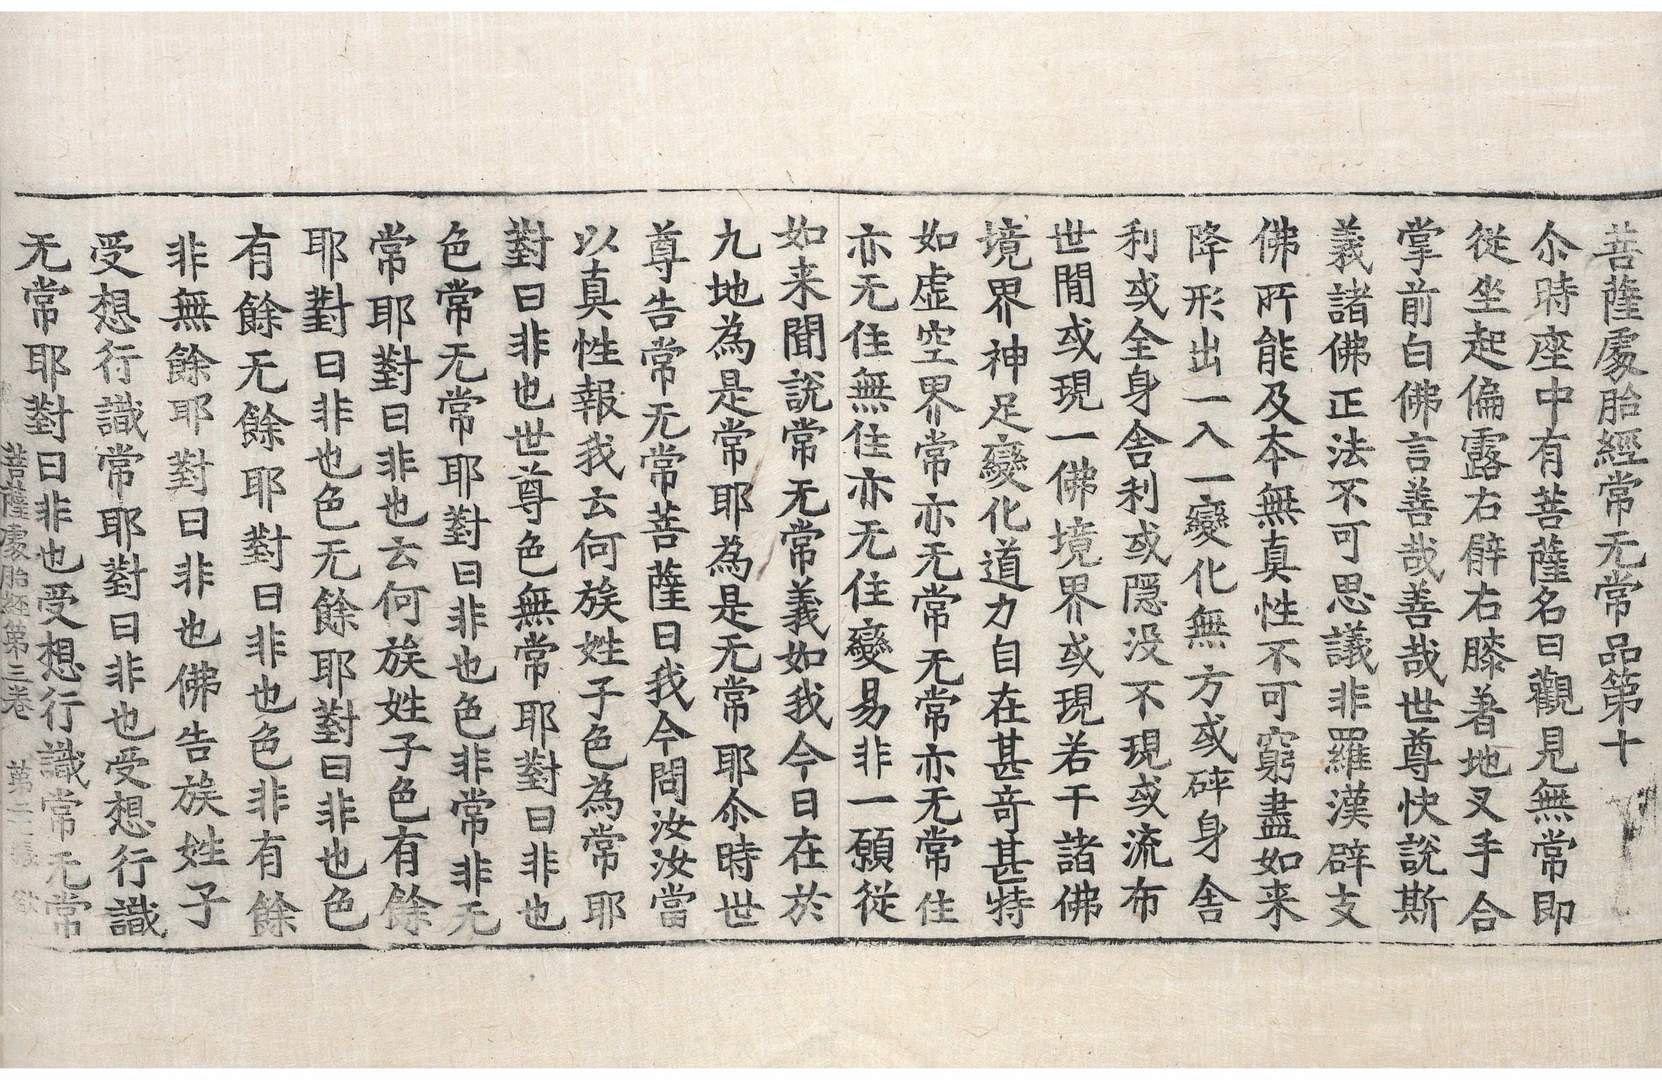 菩薩處胎經常无常品第十
尒時座中有菩薩名曰觀見無常即
從坐起偏露右臂右膝著地叉手合
掌前白佛言善哉善哉世尊快說斯
義諸佛正法不可思議非羅漢辟支
佛所能及本無真性不可窮盡如来
降形出一入一變化無方或碎身舍
利或全身舍利或隱没不現或流布
世間或現一佛境界或現若干諸佛
境界神足變化道力自在甚奇甚特
如虛空界常亦无常无常亦无常住
亦无住無住亦无住變易非一願從
如来聞說常无常義如我今日在於
九地為是常耶為是无常耶尒時世
尊告常无常菩薩曰我今問汝汝當
以真性報我云何族姓子色為常耶
對曰非也世尊色無常耶對曰非也
色常无常耶對曰非也色非常非无
常耶對曰非也云何族姓子色有餘
耶對曰非也色无餘耶對曰非也色
有餘无餘耶對曰非也色非有餘
非無餘耶對曰非也佛告族姓子
受想行識常耶對曰非也受想行識
无常耶對曰非也受想行識常无常
菩薩處胎經第三卷 第 張 欲